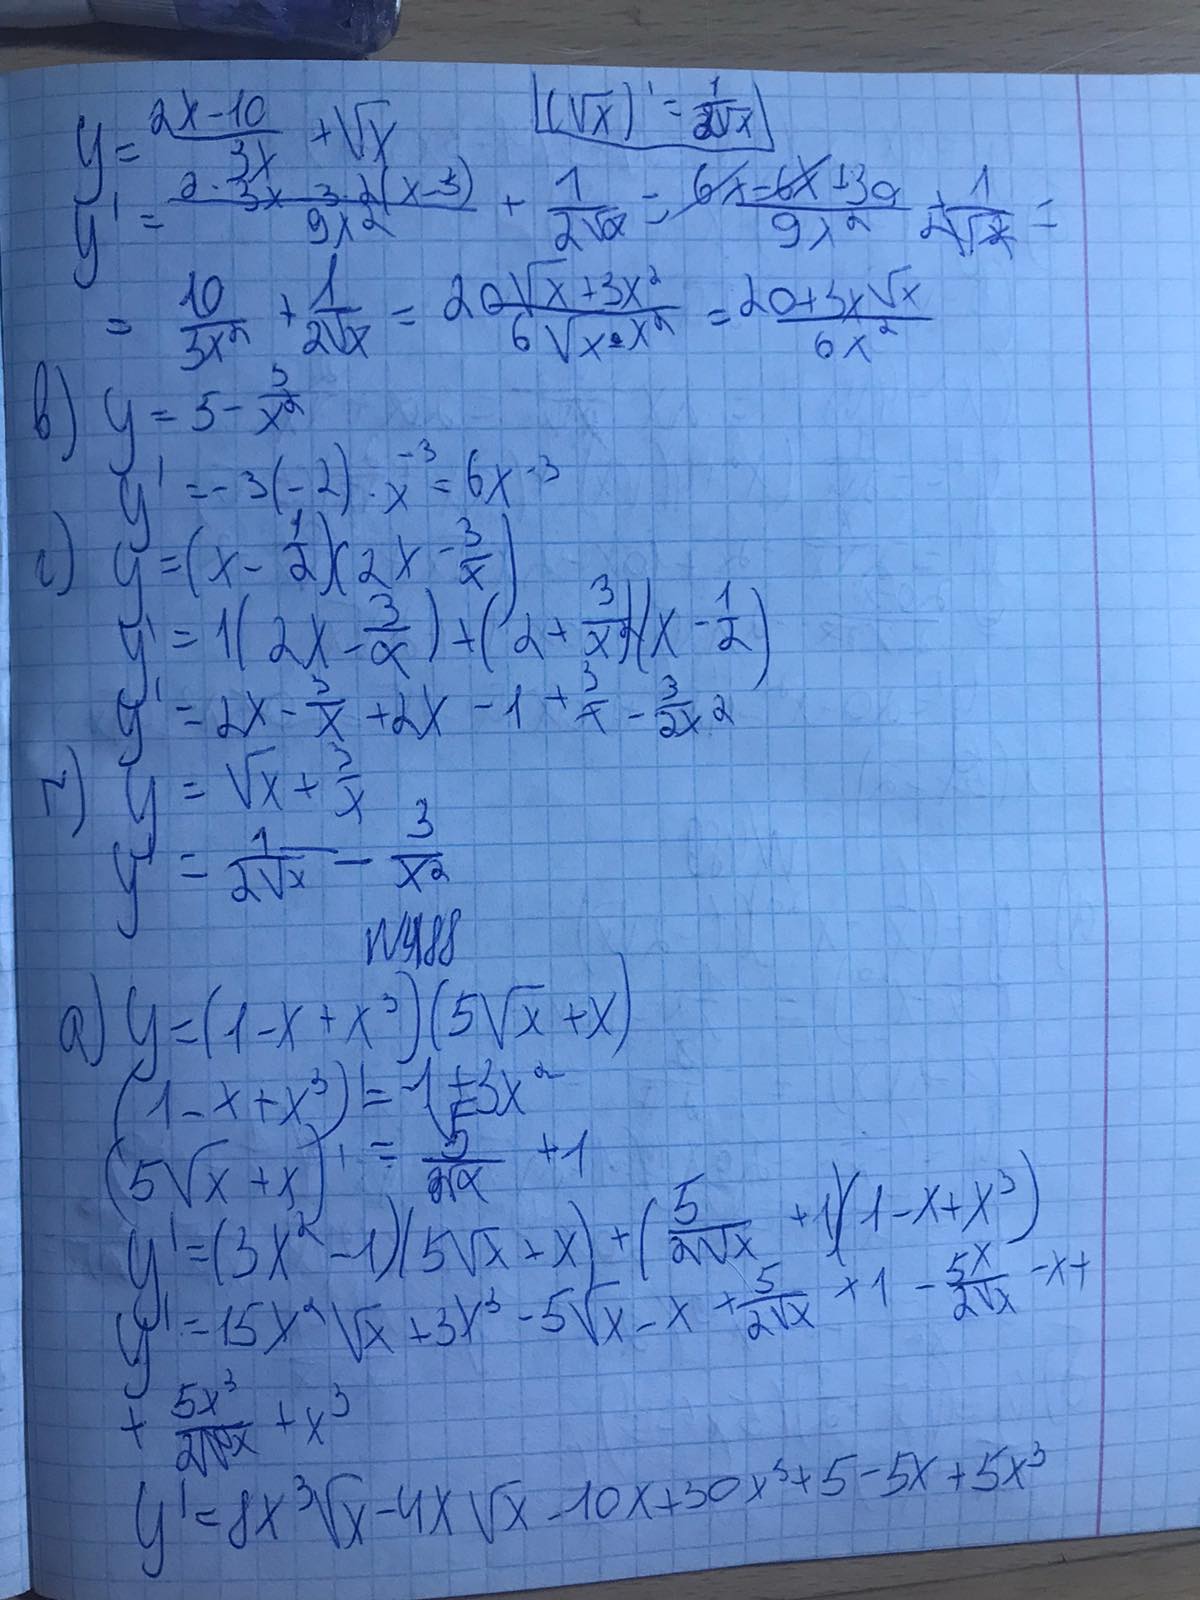 y = (2x-10)/(3x) + √x    (√x)' = 1/(2√x)
y' = (2·3x-3·2(x-3))/(9x²) + 1/(2√x) = (6x-6x+30)/(9x²) + 1/(2√x) =
= 10/(3x²) + 1/(2√x) = (20√x+3x²)/(6√x·x²) = (20+3x√x)/(6x²)
в) y = 5 - 3/x²
y' = -3(-2)·x⁻³ = 6x⁻³
г) y = (x - 1/2)(2x - 3/x)
y' = 1(2x - 3/x) + (2 + 3/x²)(x - 1/2)
y' = 2x - 3/x + 2x - 1 + 3/x - 3/(2x²)
y = √x + 3/x
y' = 1/(2√x) - 3/x²
а) y = (1-x+x³)(5√x+x)
(1-x+x³)' = -1+3x²
(5√x+x)' = 5/(2√x) + 1
y' = (3x²-1)(5√x+x) + (5/(2√x) + 1)(1-x+x³)
y' = 15x²√x + 3x³ - 5√x - x + 5/(2√x) + 1 - 5x/(2√x) - x +
+ 5x³/(2√x) + x³
y' = 8x³√x - 4x√x - 10x + 30x³ + 5 - 5x + 5x³